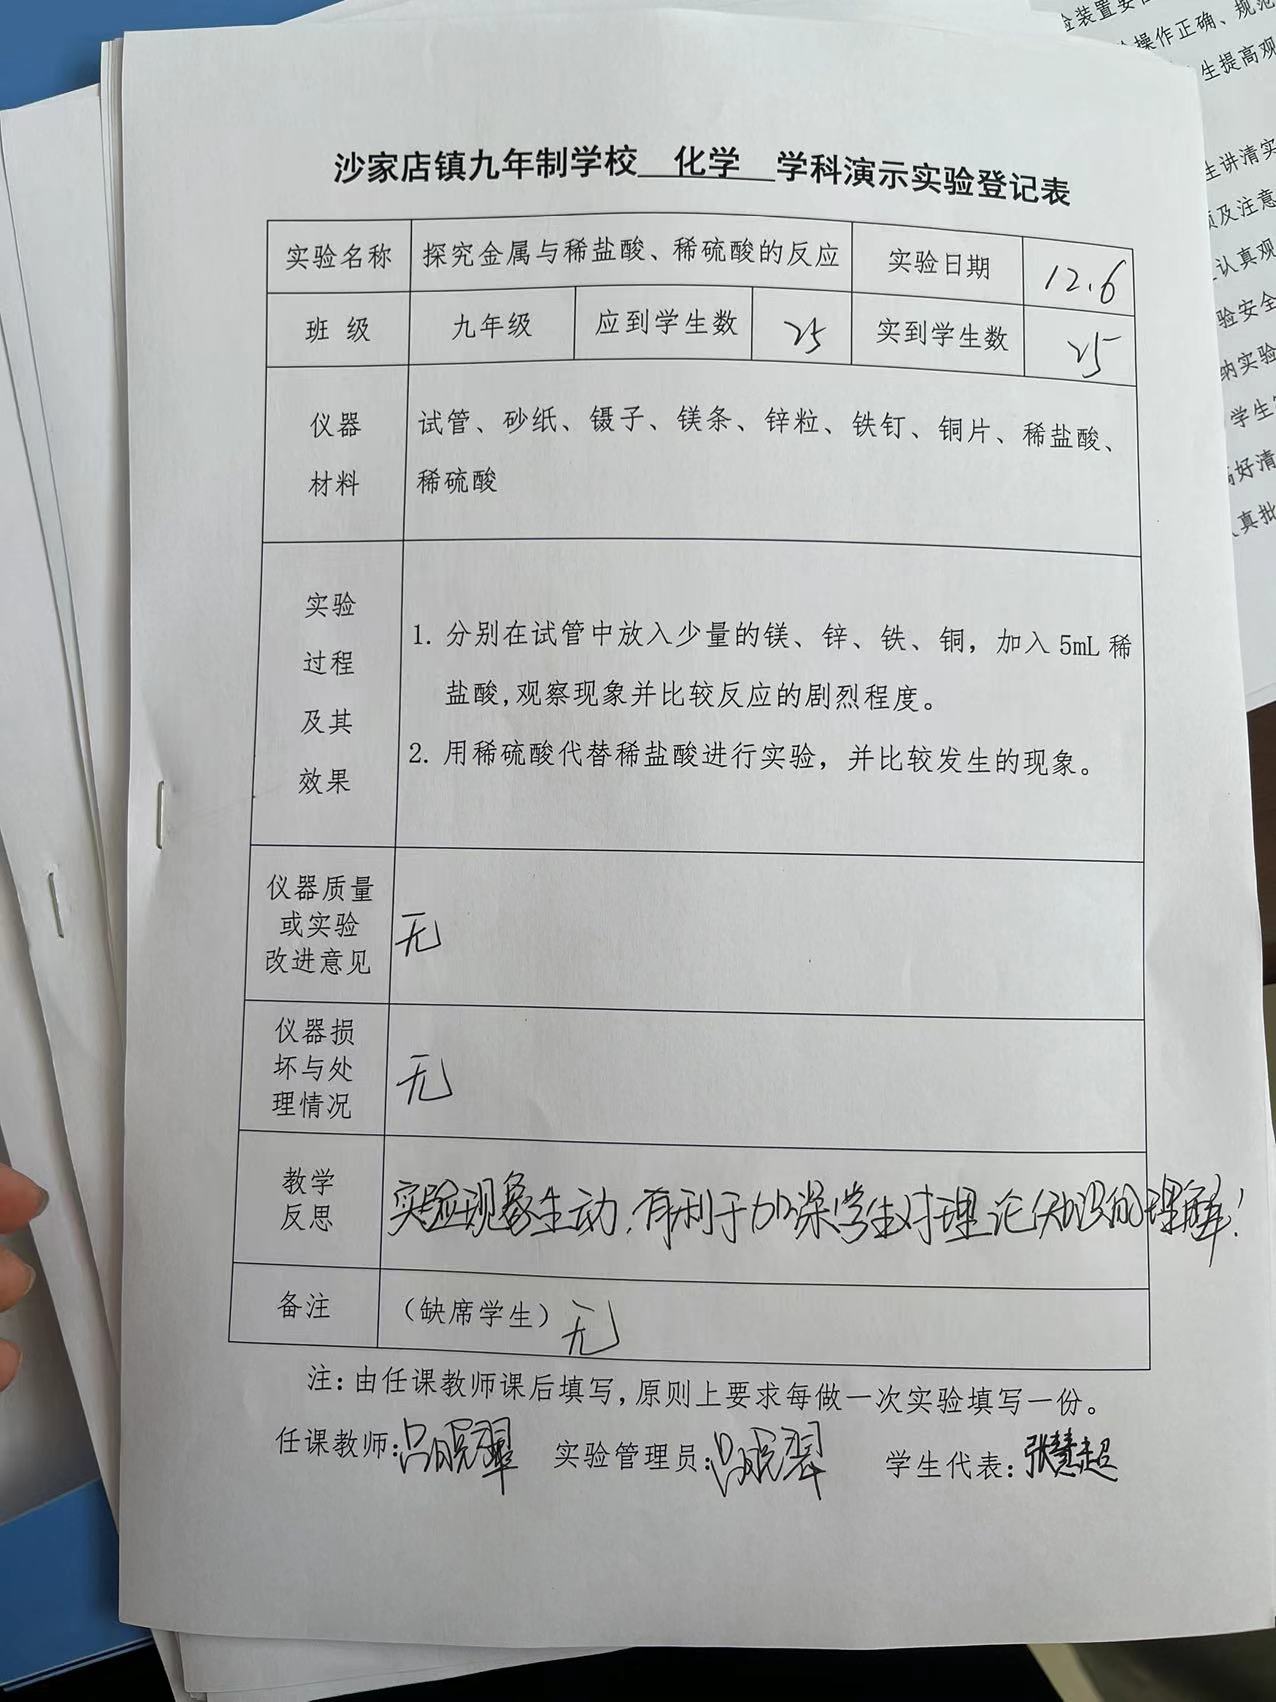 沙家店镇九年制学校 化学 学科演示实验登记表
实验名称 探究金属与稀盐酸、稀硫酸的反应 实验日期 12.6
班 级 九年级 应到学生数 25 实到学生数 25
仪器
材料
试管、砂纸、镊子、镁条、锌粒、铁钉、铜片、稀盐酸、
稀硫酸
实验
过程
及其
效果
1. 分别在试管中放入少量的镁、锌、铁、铜，加入 5mL 稀
盐酸,观察现象并比较反应的剧烈程度。
2. 用稀硫酸代替稀盐酸进行实验，并比较发生的现象。
仪器质量
或实验
改进意见
无
仪器损
坏与处
理情况
无
教学
反思
实验现象生动,有利于加深学生对理论知识的理解!
备注 (缺席学生) 无
注:由任课教师课后填写,原则上要求每做一次实验填写一份。
任课教师:吕晓翠 实验管理员:吕晓翠 学生代表:张慧超
操作正确、规范
生提高观
生讲清实
及注意
认真观
验安全
纳实验
学生
好清
真批